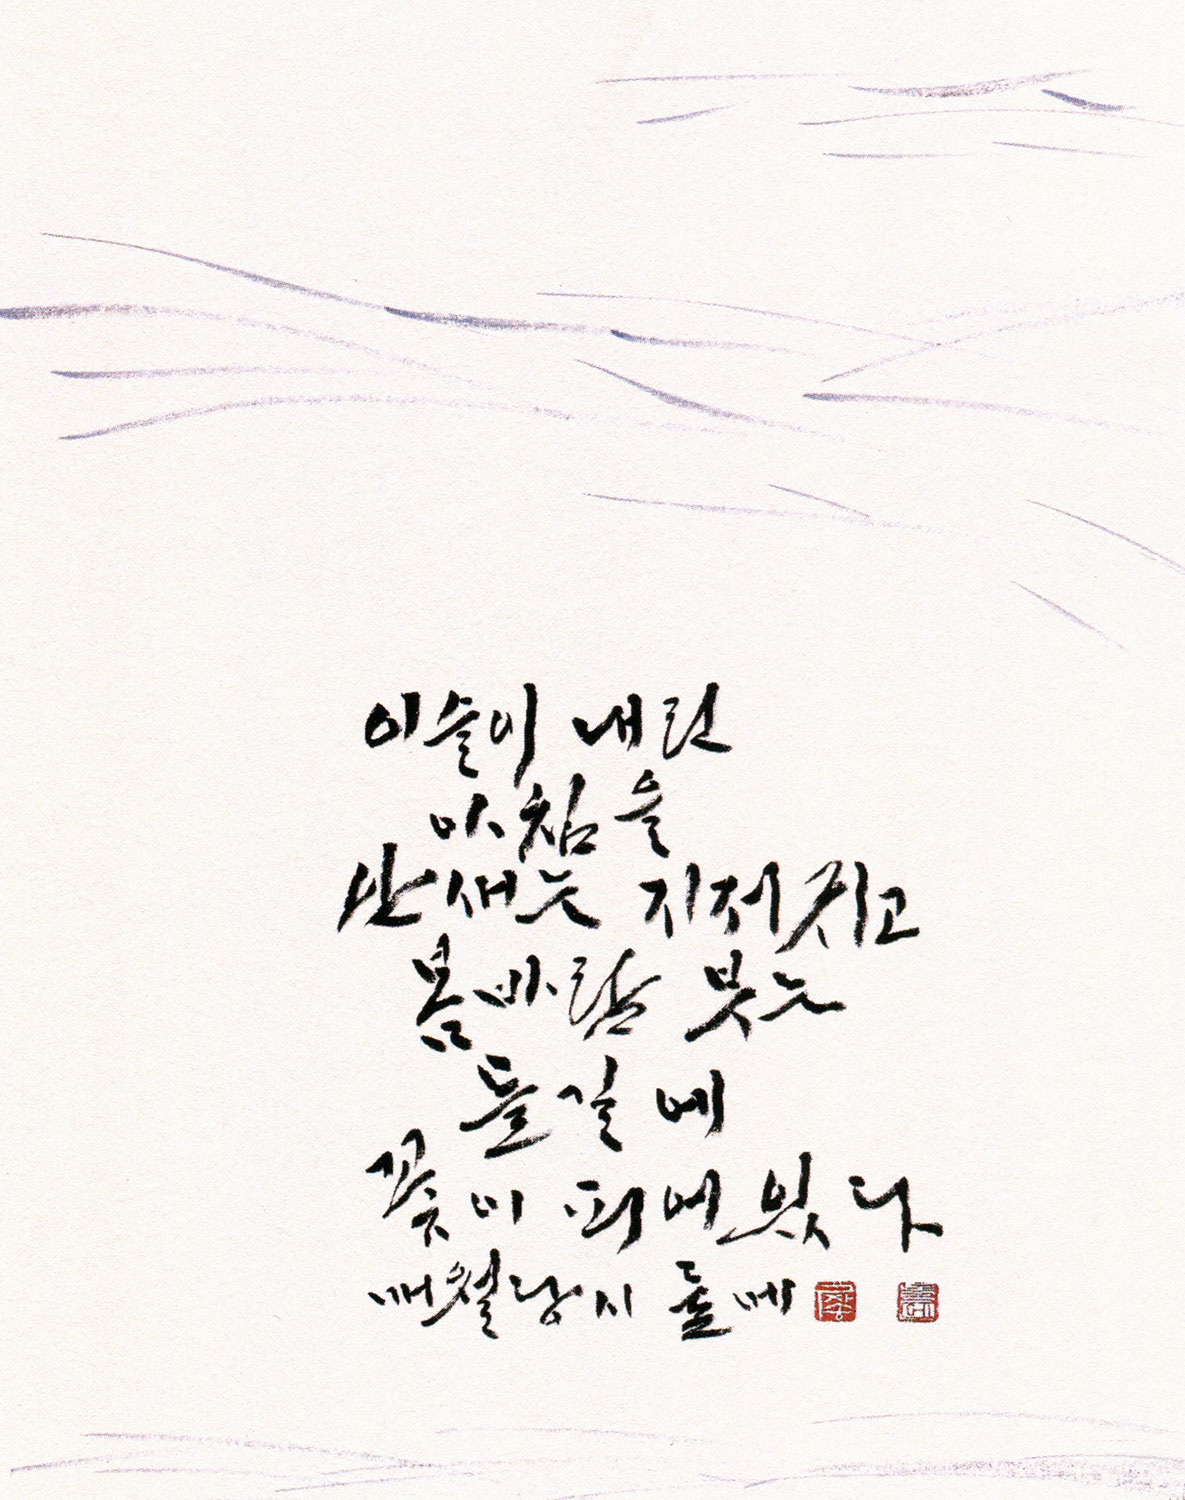 이슬이 내린
아침을
산새는 지저귀고
봄바람 부는
들길에
꽃이 피어 있다
매월당 시 들메